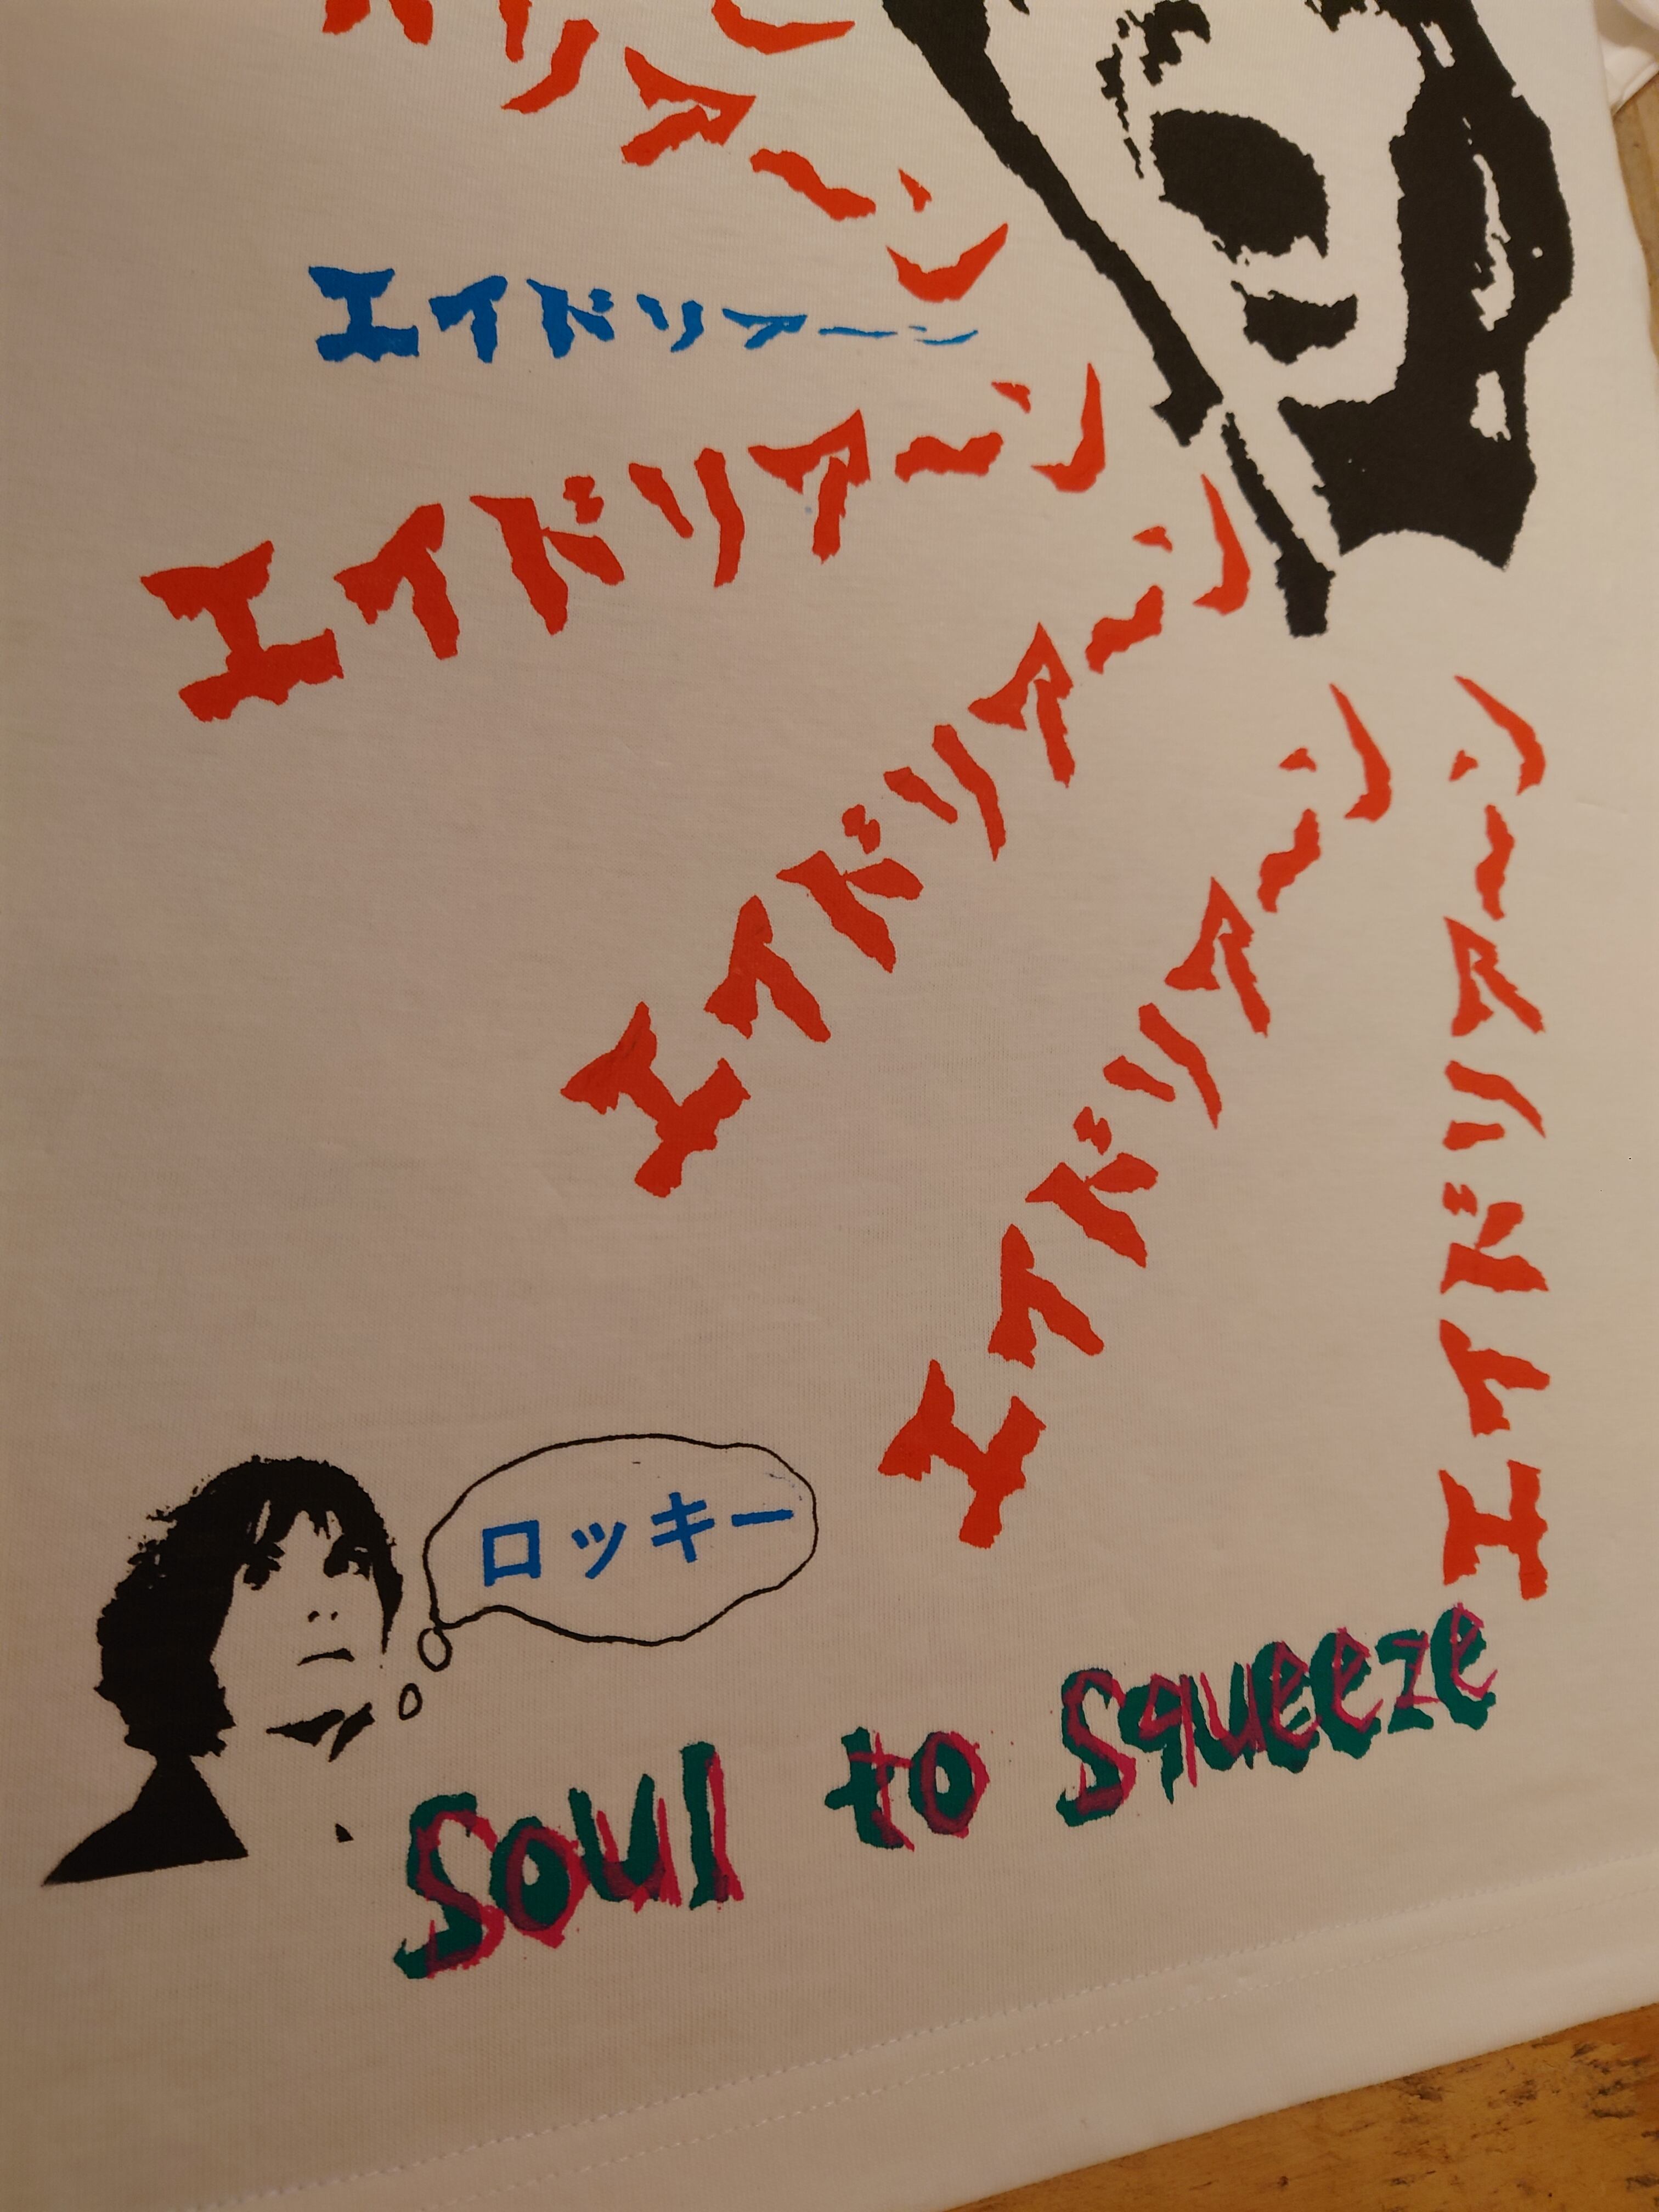 リアーン
エイドリアーン
エイドリアーン
エイドリアーン
エイドリアーン
エイドリアーン
ロッキー
Soul to Squeeze